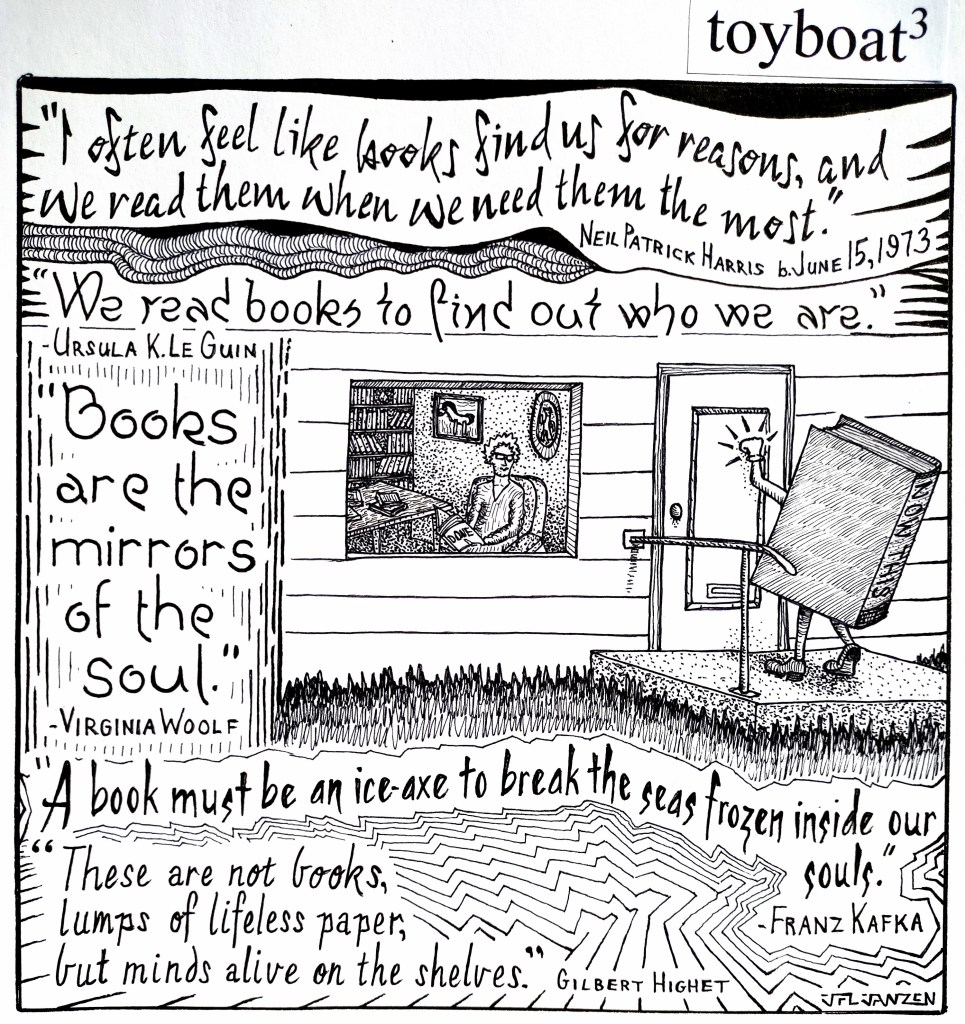 toyboat³
"I often feel like books find us for reasons, and
we read them when we need them the most."
NEIL PATRICK HARRIS b. JUNE 15, 1973
"We read books to find out who we are."
-URSULA K. LE GUIN
"Books
are the
mirrors
of the
soul."
-VIRGINIA WOOLF
DONE
NOW THIS
"A book must be an ice-axe to break the seas frozen inside our
souls."
-FRANZ KAFKA
"These are not books,
lumps of lifeless paper,
but minds alive on the shelves." GILBERT HIGHET
JFL JANZEN